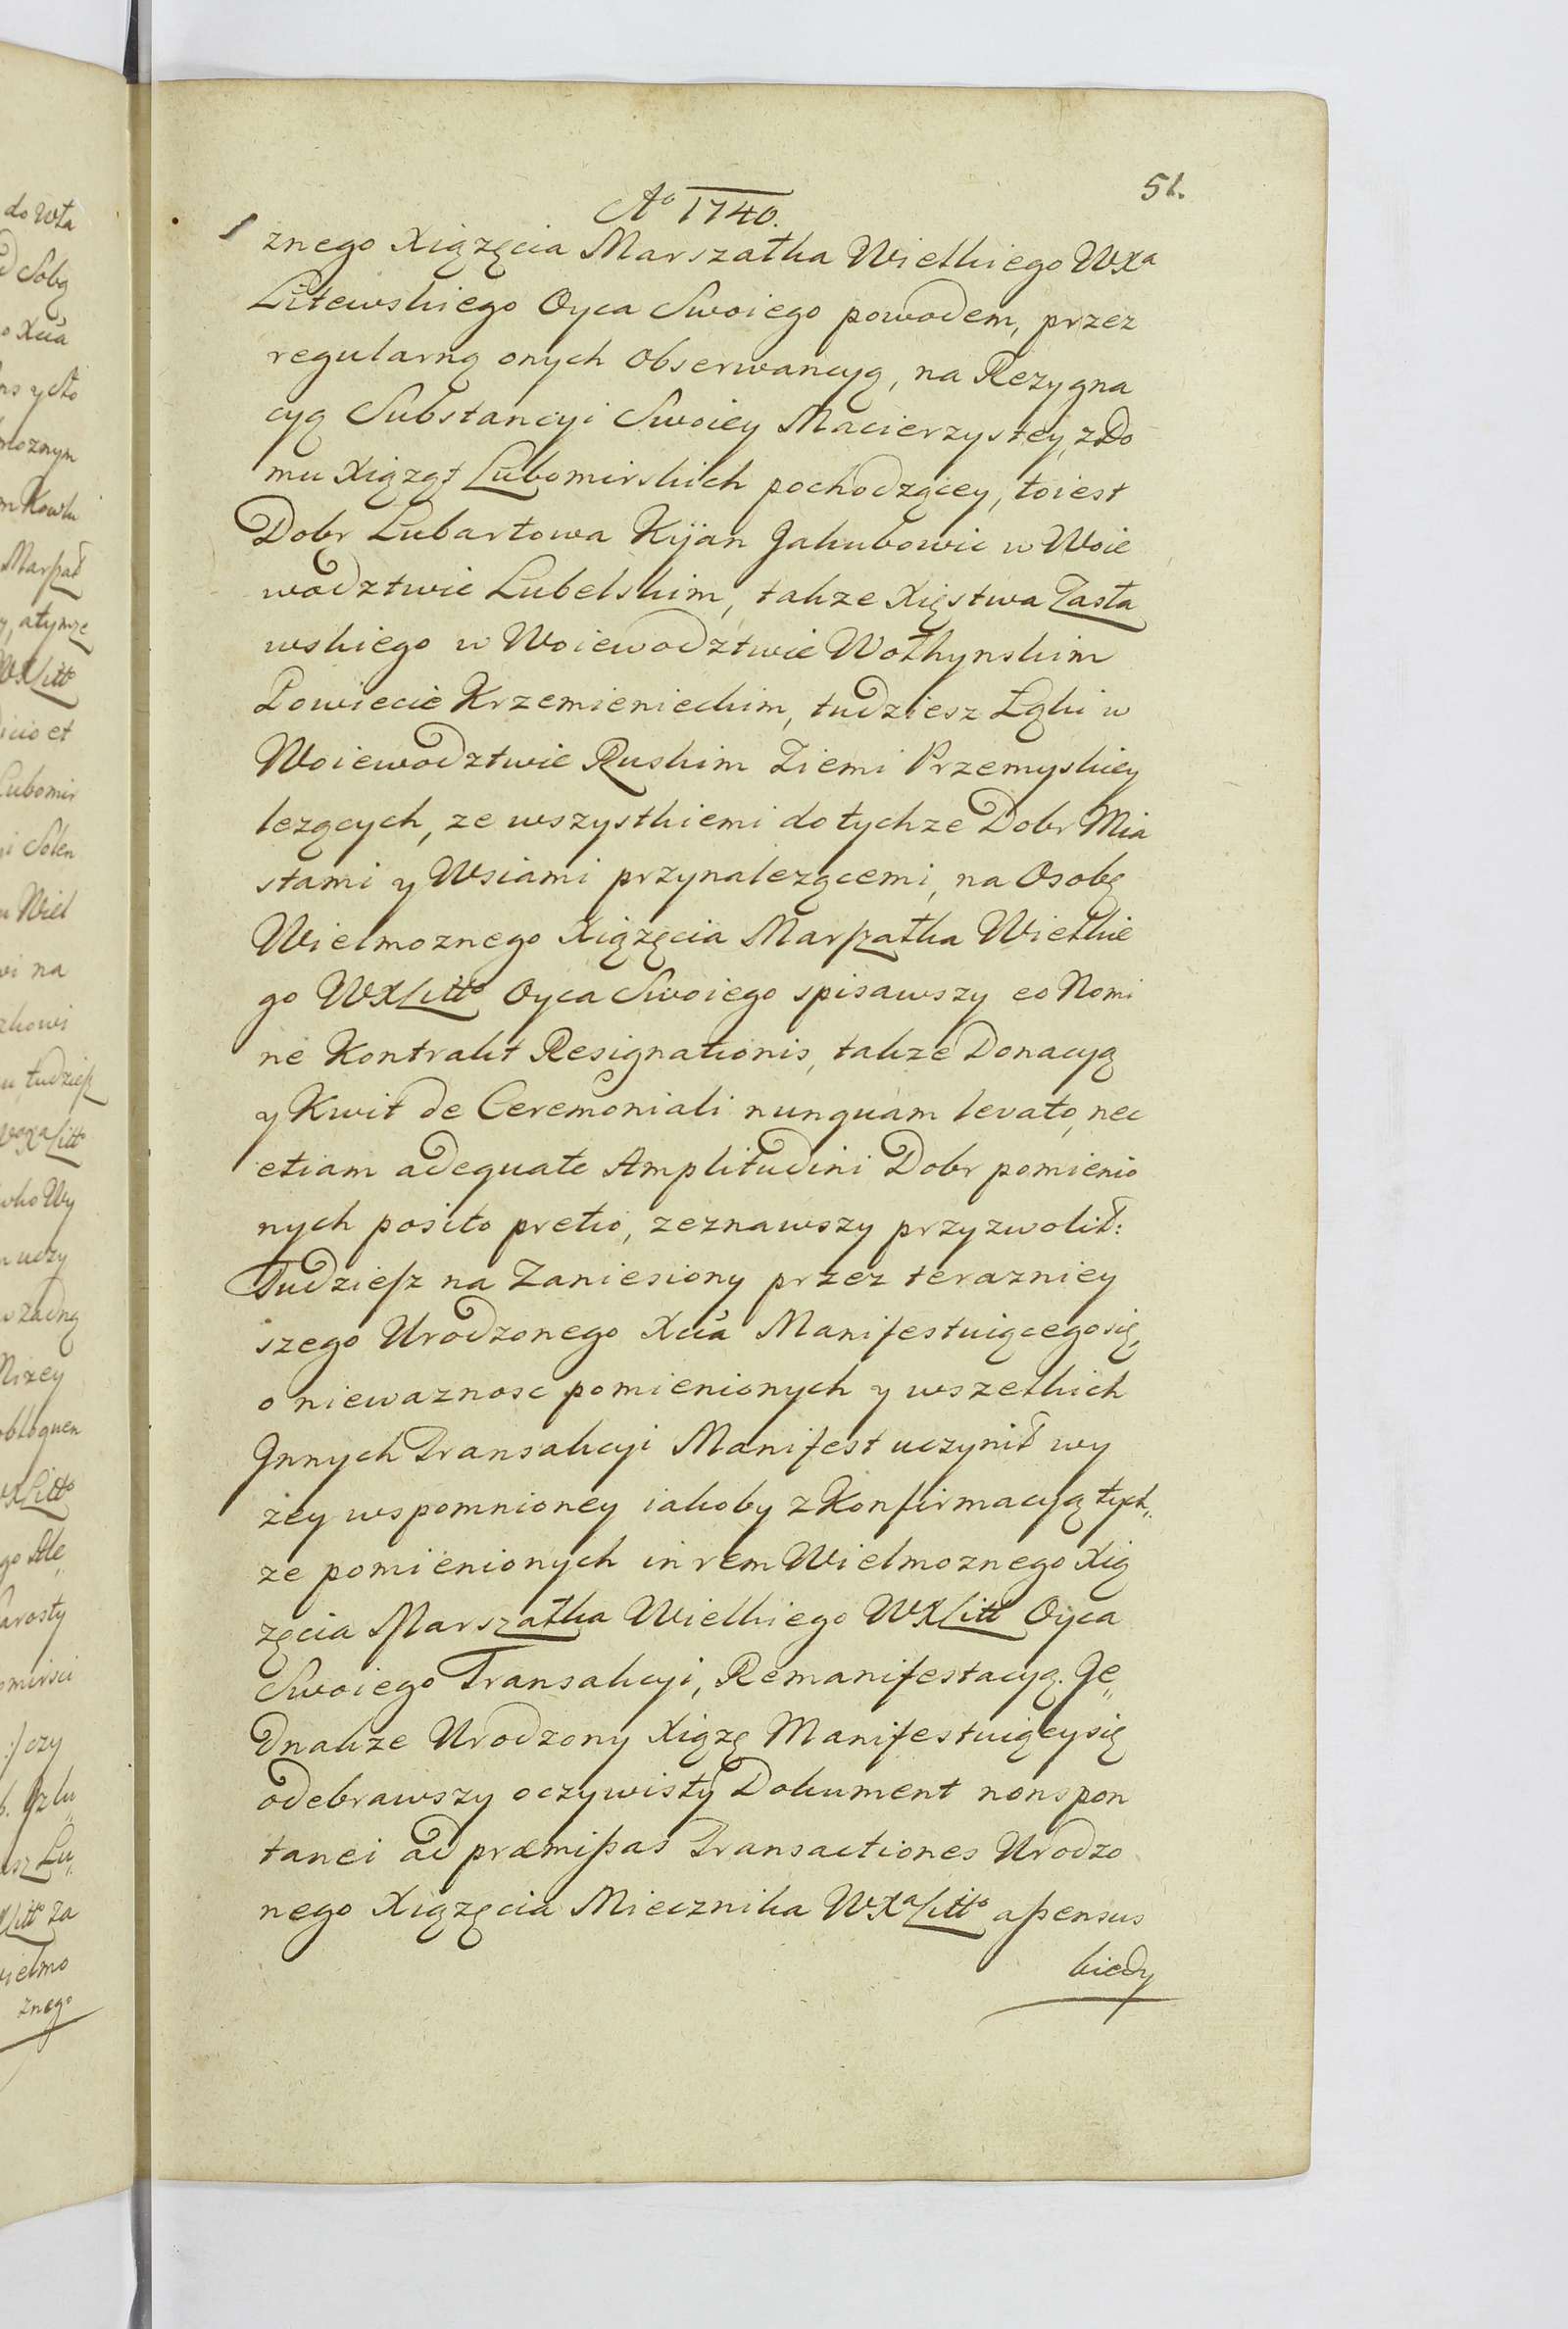 51.
Ao 1740.
znego Xiążęcia Marszałka Wielkiego WXa
Litewskiego Oyca Swoiego powodem, przez
regularną onych Obserwancyą, na Rezygna
cyą Substancyi Swoiey Macierzystey, z Do
mu Xiążąt Lubomirskich pochodzącey, toiest
Dobr Lubartowa Kijan Jakubowic w Woie
wodztwie Lubelskim, takze Xięstwa Zasła
wskiego w Woiewodztwie Wołhynskim
Powiecie Krzemienieckim, tudziesz Łąki w
Woiewodztwie Ruskim Ziemi Przemyskiey
lezących, ze wszystkiemi do tychze Dobr Mia
stami y Wsiami przynalezącemi, na Osobę
Wielmoznego Xiążęcia Marszałka Wielkie
go WXLitto Oyca Swoiego spisawszy eo Nomi
ne Kontrakt Resignationis, takze Donacyą
y Kwit de Ceremoniali nunquam levato, nec
etiam adequate Amplitudini Dobr pomienio
nych posito pretio, zeznawszy przyzwolił:
Tudziesz na Zaniesiony przez terazniey
szego Urodzonego Xcia Manifestuiącego się,
o niewaznosc pomienionych y wszelkich
Jnnych Transakcyi Manifest uczynił wy
żey wspomnioney iakoby z Konfirmacyą tych„
ze pomienionych in rem Wielmoznego Xią
zęcia Marszałka Wielkiego WXLitt Oyca
Swoiego Transakcyi, Remanifestacyą. Je„
dnakze Urodzony Xiążę Manifestuiący się
odebrawszy oczywisty Dokument non spon
tanei ad præmissas Transactiones Urodzo
nego Xiążęcia Miecznika WXaLitto assensus
kiedy